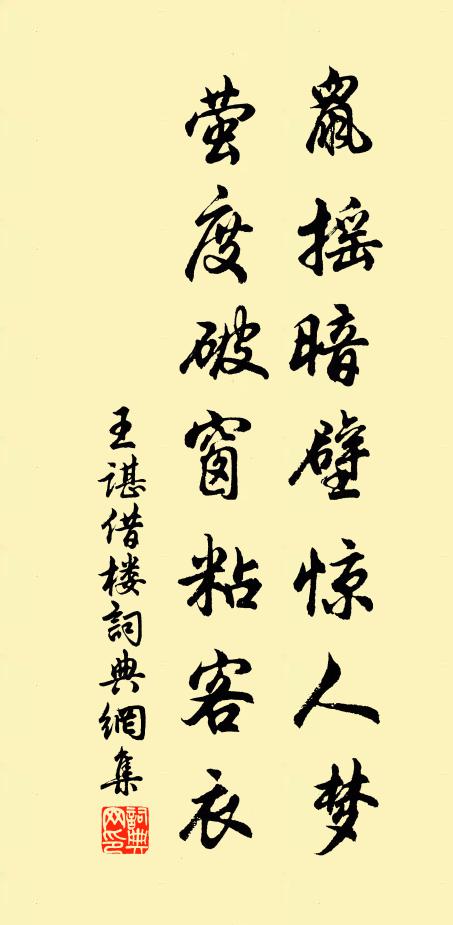 鼠摇暗壁惊人梦
萤度破窗粘客衣
王谌借楼詞典網集
詞典网印